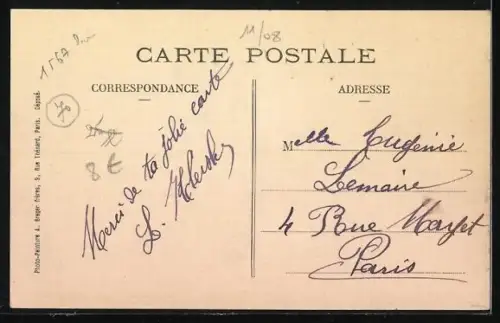 11/08
CARTE POSTALE
CORRESPONDANCE
ADRESSE
70
8 €
Merci de ta jolie carte
L.
Melle Eugénie
Lemaire
4 Rue Mayet
Paris
Photo-Peinture A. Breger frères, 9, Rue Thénard, Paris. Déposé.